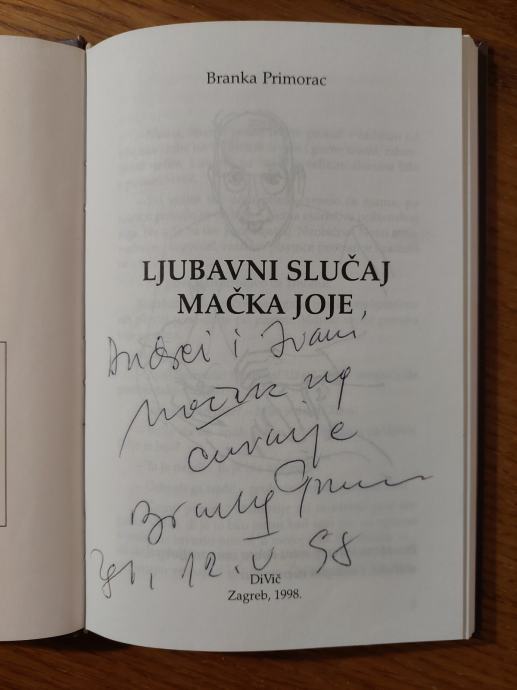 Branka Primorac
LJUBAVNI SLUČAJ
MAČKA JOJE
Andrei i Ivani,
mačak na
čuvanje
Branka Primorac
Zgb, 12. V 98
DiVič
Zagreb, 1998.